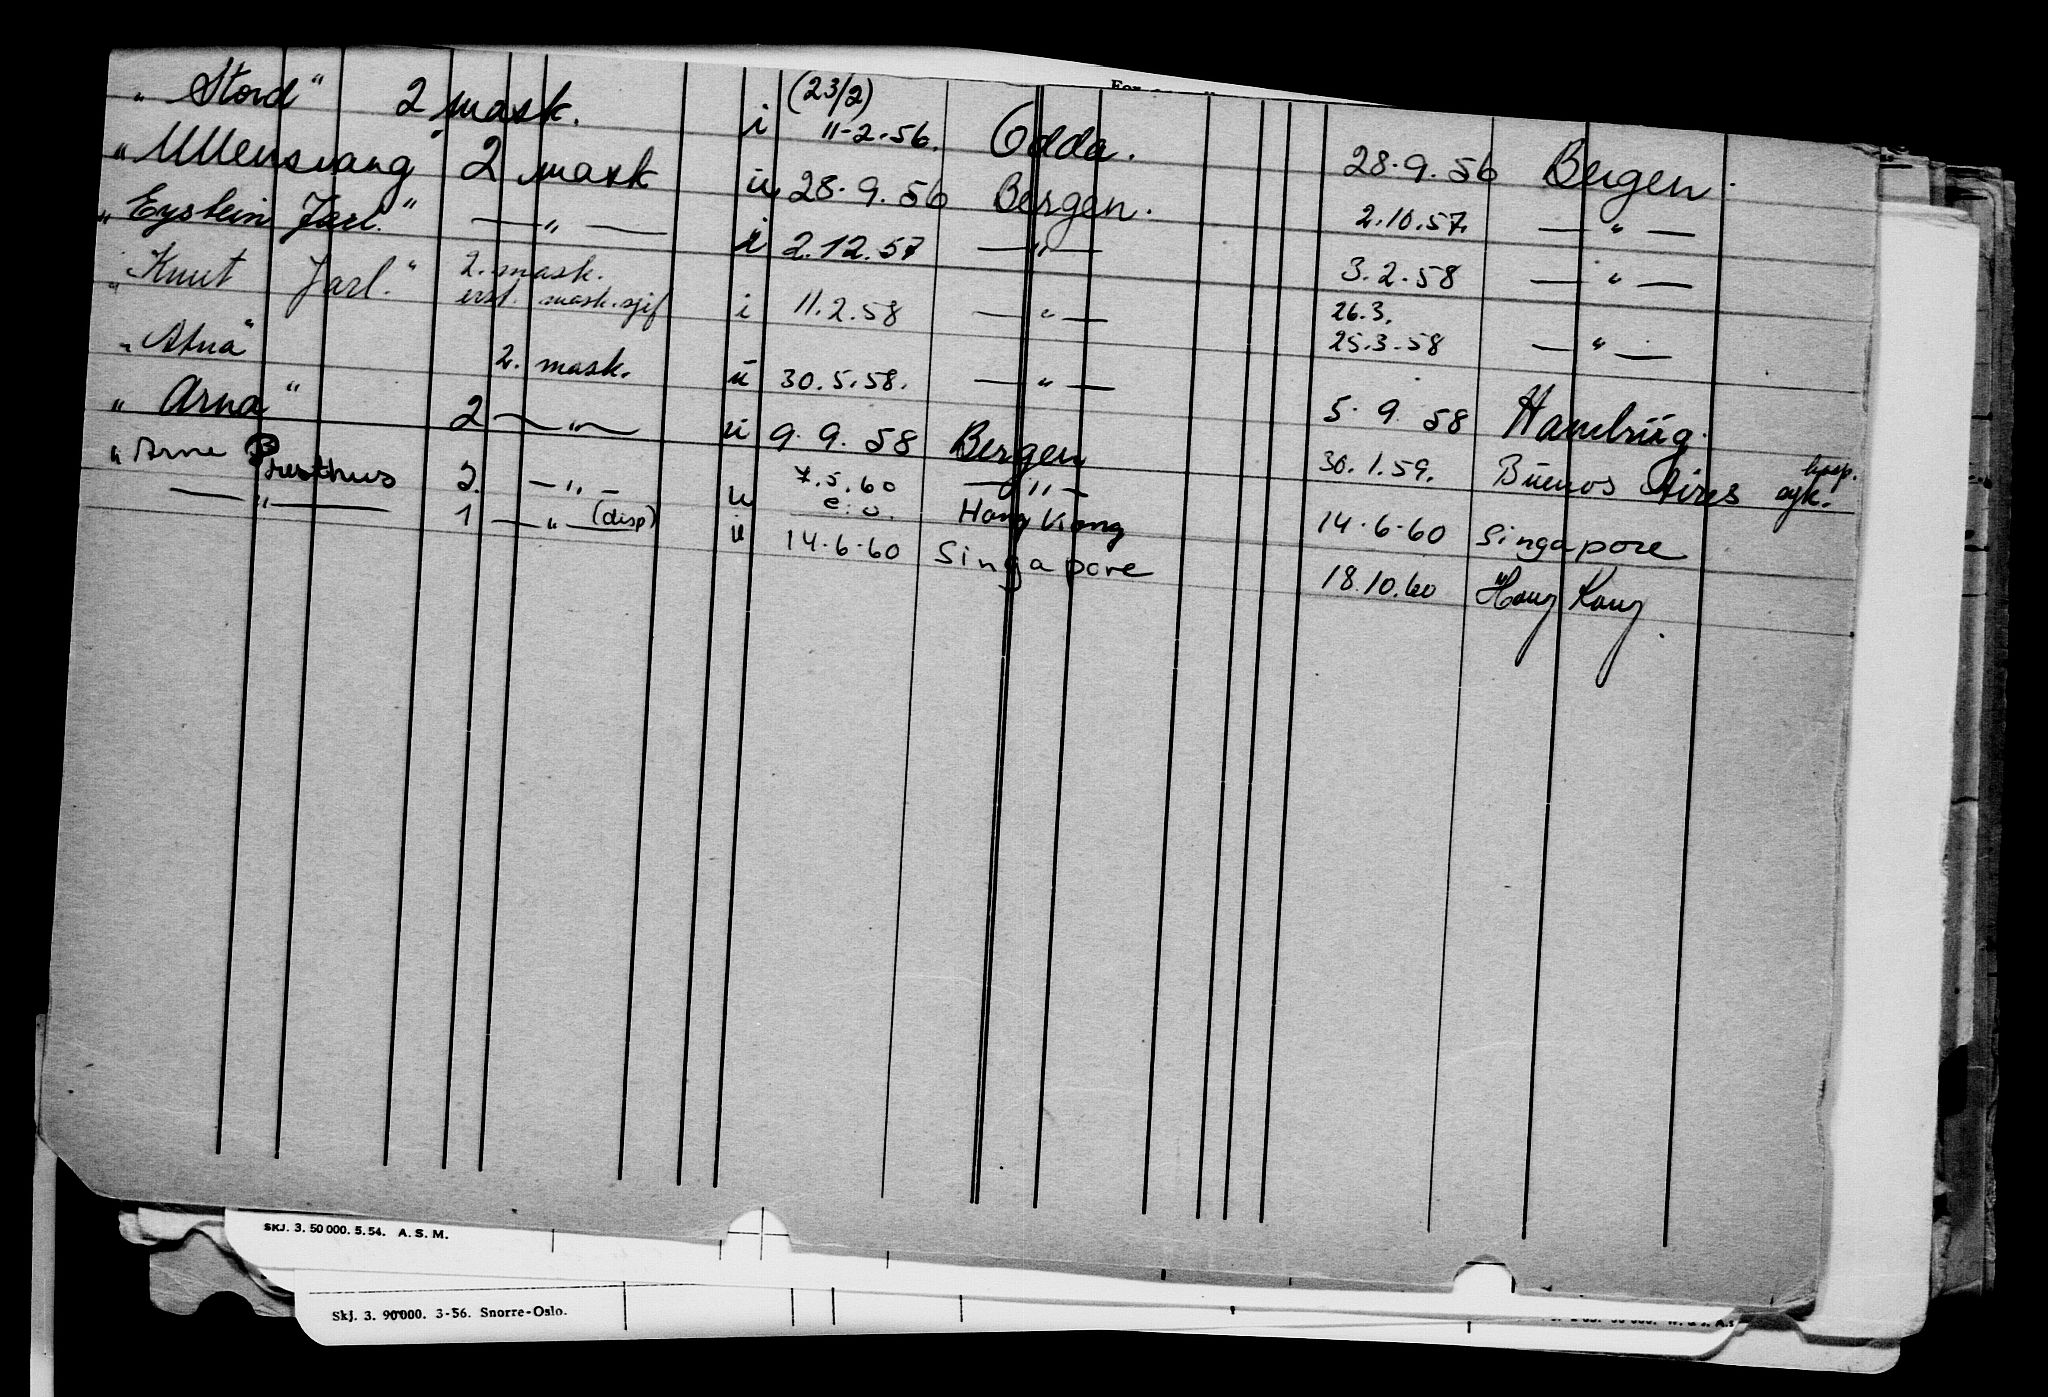 „Stord“ 2 mask. i (23/2) 11-2-56. Odda. 28.9.56 Bergen.
„Ullensvang“ 2 mask u 28.9.56 Bergen. 2.10.57. — „ —
„Eystein Jarl.“ — „ — i 2.12.57 — „ — 3.2.58 — „ —
„Knut Jarl.“ 2. mask. erst. mask.sjef i 11.2.58 — „ — 26.3. 25.3.58 — „ —
„Atna“ 2. mask. u 30.5.58. — „ — 5.9.58 Hamburg.
„Arna“ 2 — „ — u 9.9.58 Bergen 30.1.59. Buenos Aires syk. hosp.
„Arne Presthus 2. — „ — u 7.5.60 e.o. — „ — Hong Kong 14.6.60 Singapore
— „ — 1 — „ — (disp) u 14.6.60 Singapore 18.10.60 Hong Kong.
SKJ. 3. 50 000. 5.54. A. S. M.
Skj. 3. 90 000. 3-56. Snorre-Oslo.